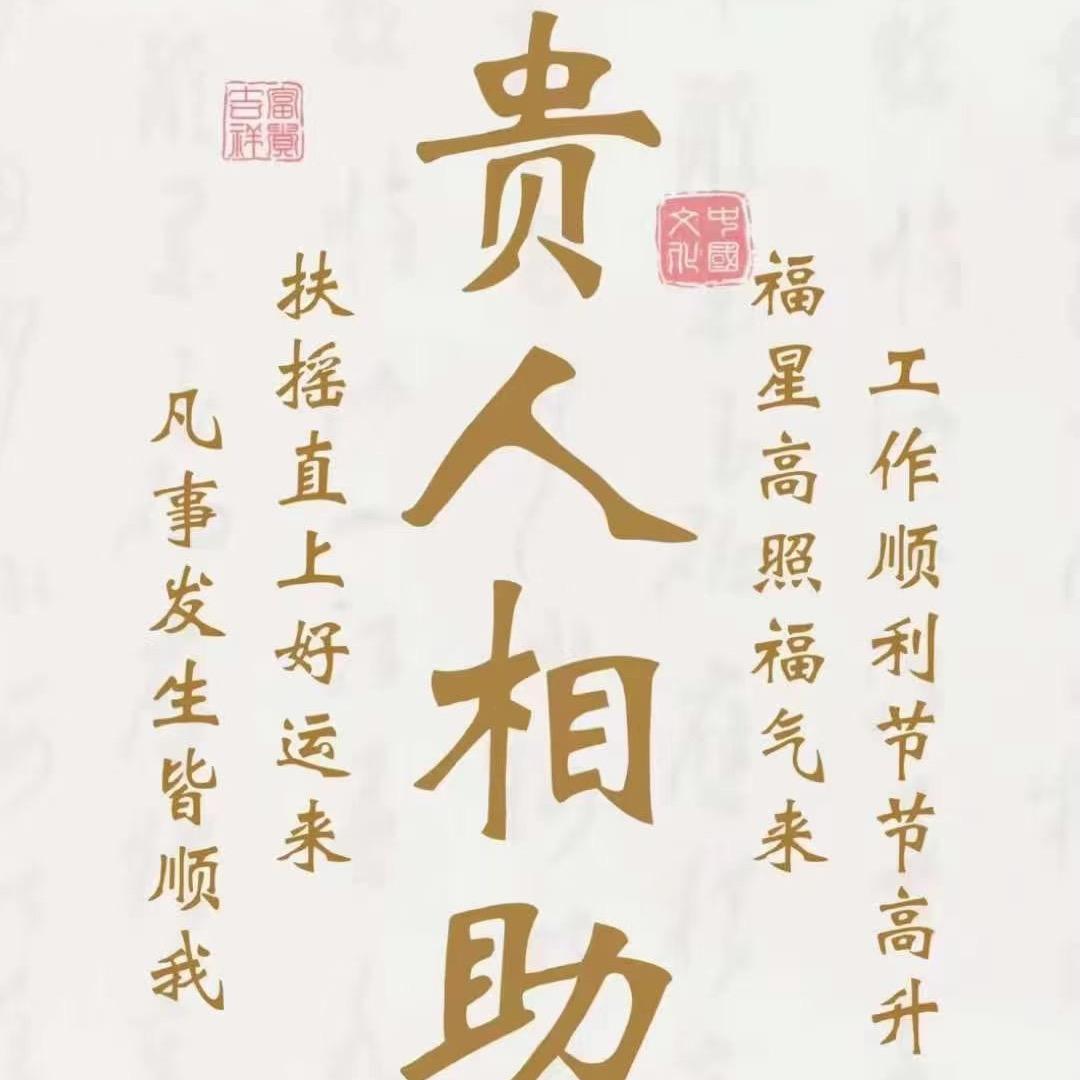 工作顺利节节高升
福星高照福气来
贵人相助
扶摇直上好运来
凡事发生皆顺我
中國文化
富貴吉祥